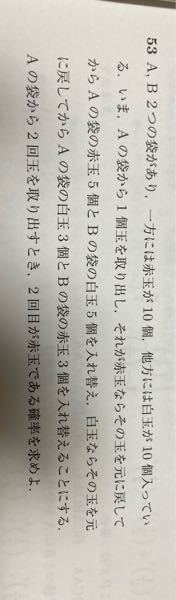 53 A，B 2つの袋があり，一方には赤玉が10個，他方には白玉が10個入ってい
る．いま，Aの袋から1個玉を取り出し，それが赤玉ならその玉を元に戻して
からAの袋の赤玉5個とBの袋の白玉5個を入れ替え，白玉ならその玉を元
に戻してからAの袋の白玉3個とBの袋の赤玉3個を入れ替えることにする．
Aの袋から2回玉を取り出すとき，2回目が赤玉である確率を求めよ．